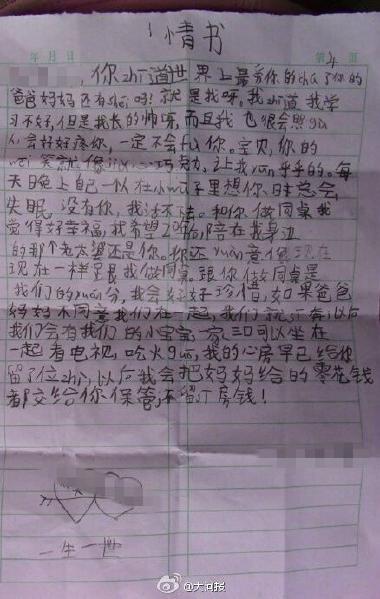 情书
年 月 日
第 4
你zhi道世界上最夸你的chú了你的
爸爸妈妈还有shéi吗?就是我呀。我zhi道我学
习不好,但是我长的帅呀,而且我也很会照gu
会好好疼你,一定不会fu你。宝贝,你的
笑就像 巧克力,让我yun乎乎的。每
天晚上自己一 在小 子里想你,总会
失眠,没有你,我活不 。和你做同桌我
觉得好幸福,我希望 ,陪在我身边
的那个老太婆还是你。你还yuàn意像现在
现在一样跟我做同桌,跟你做同桌是
我们的yuán分,我会好好珍惜,如果爸爸
妈妈不同意我们在一起,我们就 以后
我们会有我们的小宝宝,一家三口可以坐在
一起看电视,吃火guo,我的心房早已给你
留了位zhi,以后我会把妈妈给的零花钱
都交给你保管,不留 房钱!
一生一世
@大河报